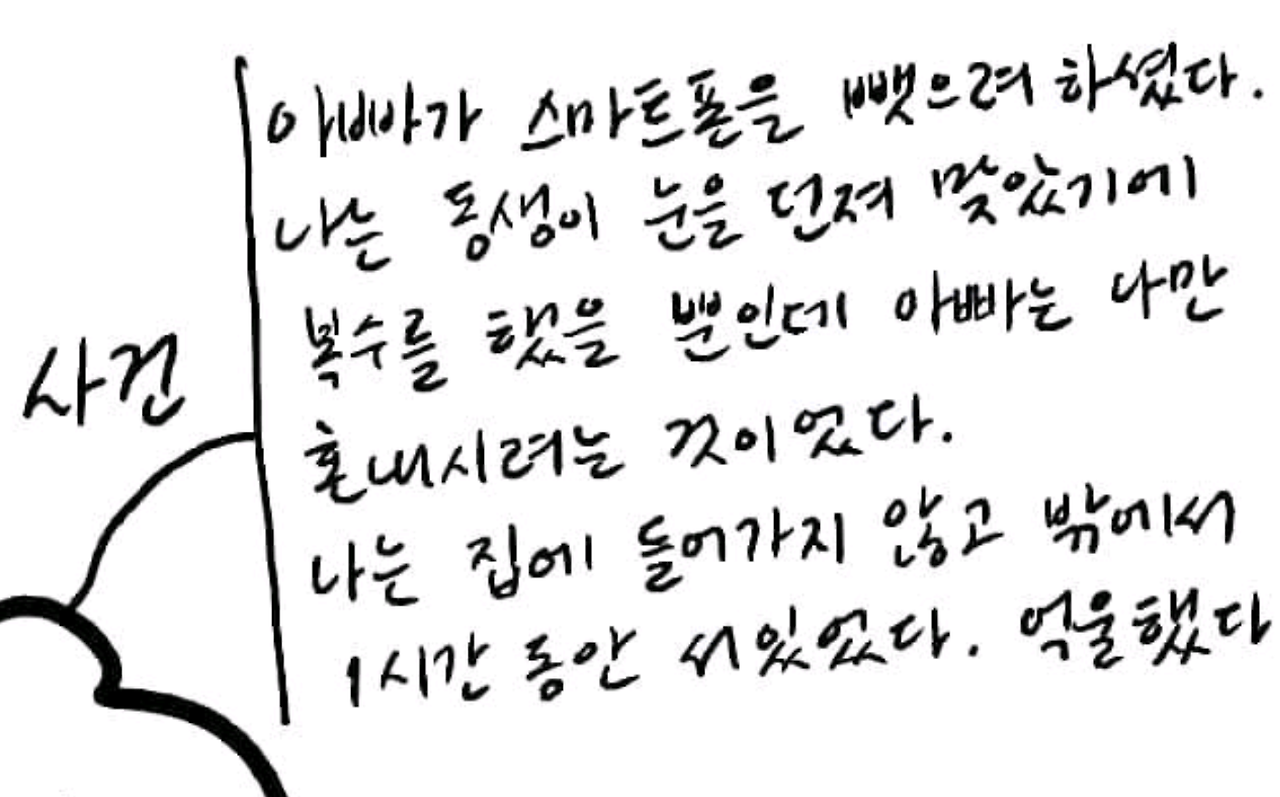 아빠가 스마트폰을 뺏으려 하셨다.
나는 동생이 눈을 던져 맞았기에
복수를 했을 뿐인데 아빠는 나만
사건
혼내시려는 것이었다.
나는 집에 들어가지 않고 밖에서
1시간 동안 서있었다. 억울했다